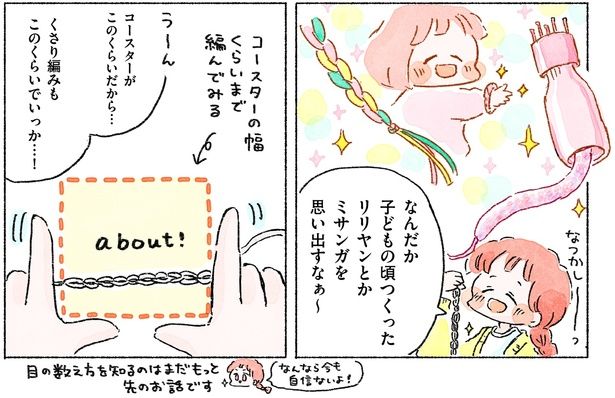 なつかしーーっ
なんだか
子どもの頃つくった
リリヤンとか
ミサンガを
思い出すなぁ〜
コースターの幅
くらいまで
編んでみる
う〜ん
コースターが
このくらいだから…
くさり編みも
このくらいでいっか…!
about!
目の数え方を知るのはまだもっと
先のお話です
なんなら今も
自信ないよ!